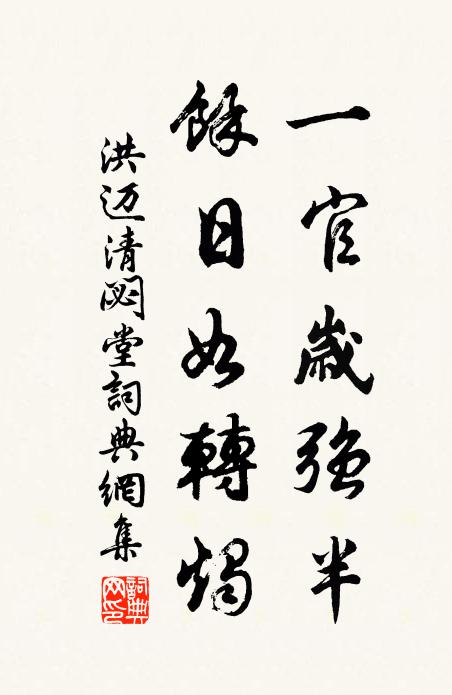 一官歲強半
餘日如轉燭
洪迈清閟堂詞典網集
詞典网印